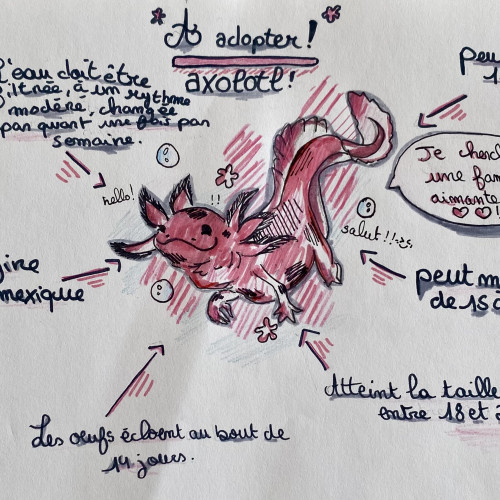 A adopter!
axolotl!
L'eau doit être
filtrée, à un rythme
modéré, changée
par quart une fois par
semaine.
peu
1
Je cherch
une fam
aimante
hello!
!!
salut!!
gine
mexique
peut m
de 15 c
Atteint la taille
entre 18 et 2
Les œufs éclosent au bout de
14 jours.